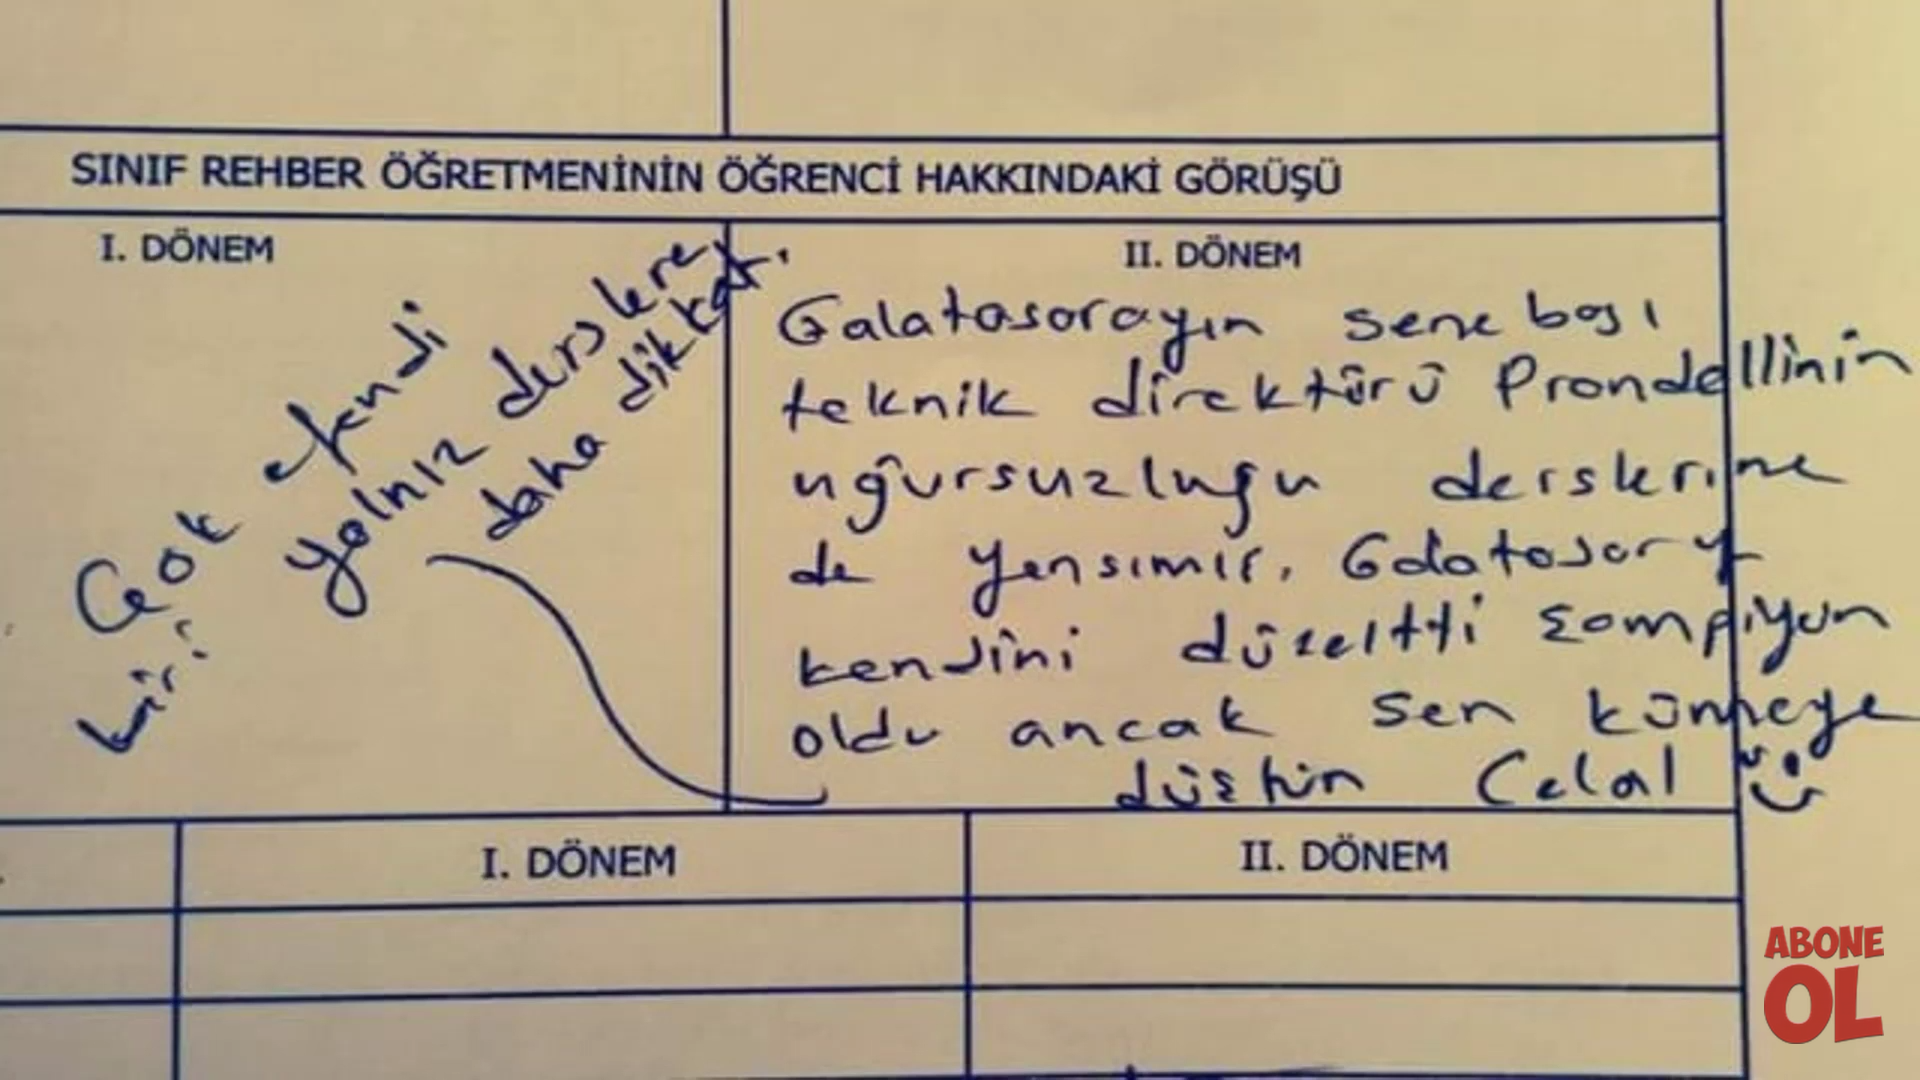 SINIF REHBER ÖĞRETMENİNİN ÖĞRENCİ HAKKINDAKİ GÖRÜŞÜ
I. DÖNEM
Çok efendi
biri
yalnız derslere
daha dikkat.
II. DÖNEM
Galatasarayın sene başı
teknik direktörü Prandellinin
uğursuzluğu derslerine
de yansımış. Galatasaray
kendini düzeltti şampiyon
oldu ancak sen kümeye
düştün Celal
I. DÖNEM
II. DÖNEM
ABONE
OL